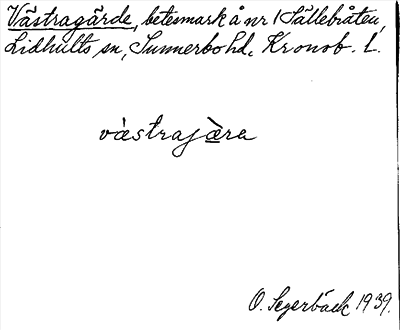 Västragärde, betesmark å nr 1 Sällebråten,
Lidhults sn, Sunnerbo hd, Kronob. L.
västrajära
O. Segerbäck 1939.